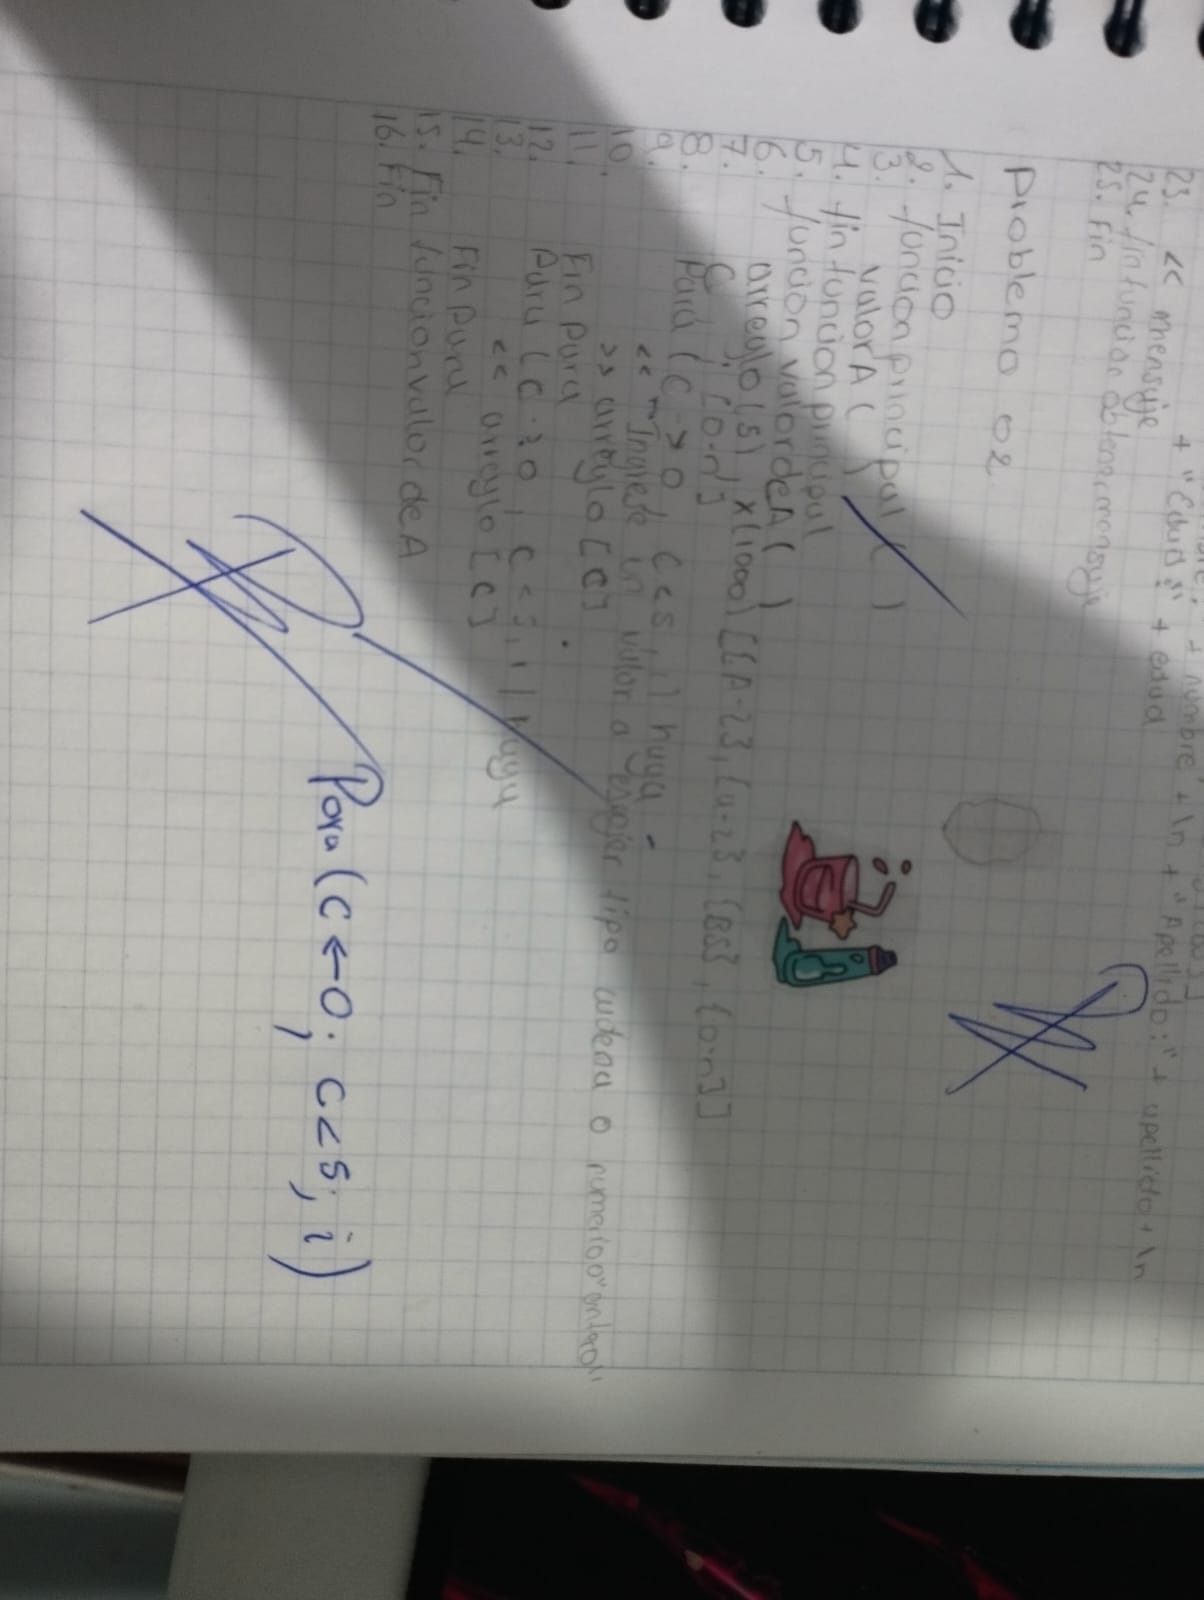 + nombre + \n + "Apellido:" + apellido + \n
+ "Edad:" + edad
23. << mensaje
24. fin funcion obtenermensaje
25. Fin
Problema 02
1. Inicio
2. funcion principal ( )
3. valorA ( )
4. fin funcion principal
5. funcion valordeA ( )
6. arreglo (5) x (1000) [[A-Z], [a-z], [85], [0-n]]
7. C: [0-n]
8. Para (C → 0, C < 5, 1] haya
9. << "Ingrese un valor a escojer tipo cadena o numerico entero"
10. >> arreglo [C]
11. Fin para
12. Para (C → 0, C < 5, 1] haya
13. << arreglo [C]
14. Fin Para
15. Fin funcion valor de A
16. Fin
Para (C ← 0; C < 5; i)